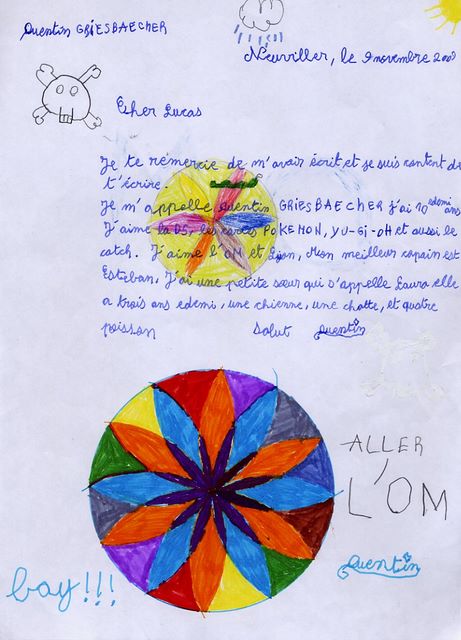 Quentin GRIESBAECHER
Neuviller, le 9 novembre 2009
Csher Lucas
Je te remercie de m'avoir écrit, et je suis content de
t'écrire.
Je m'appelle Quentin GRIESBAECHER j'ai 10 edemi ans
J'aime la DS, les cartes POKEMON, YU-GI-OH et aussi le
catch. J'aime l'OM et Lyon, Mon meilleur copain est
Esteban. J'ai une petite sœur qui s'appelle Laura elle
a trois ans edemi, une chienne, une chatte, et quatre
poisson Salut Quentin
ALLER
L'OM
Quentin
bay!!!